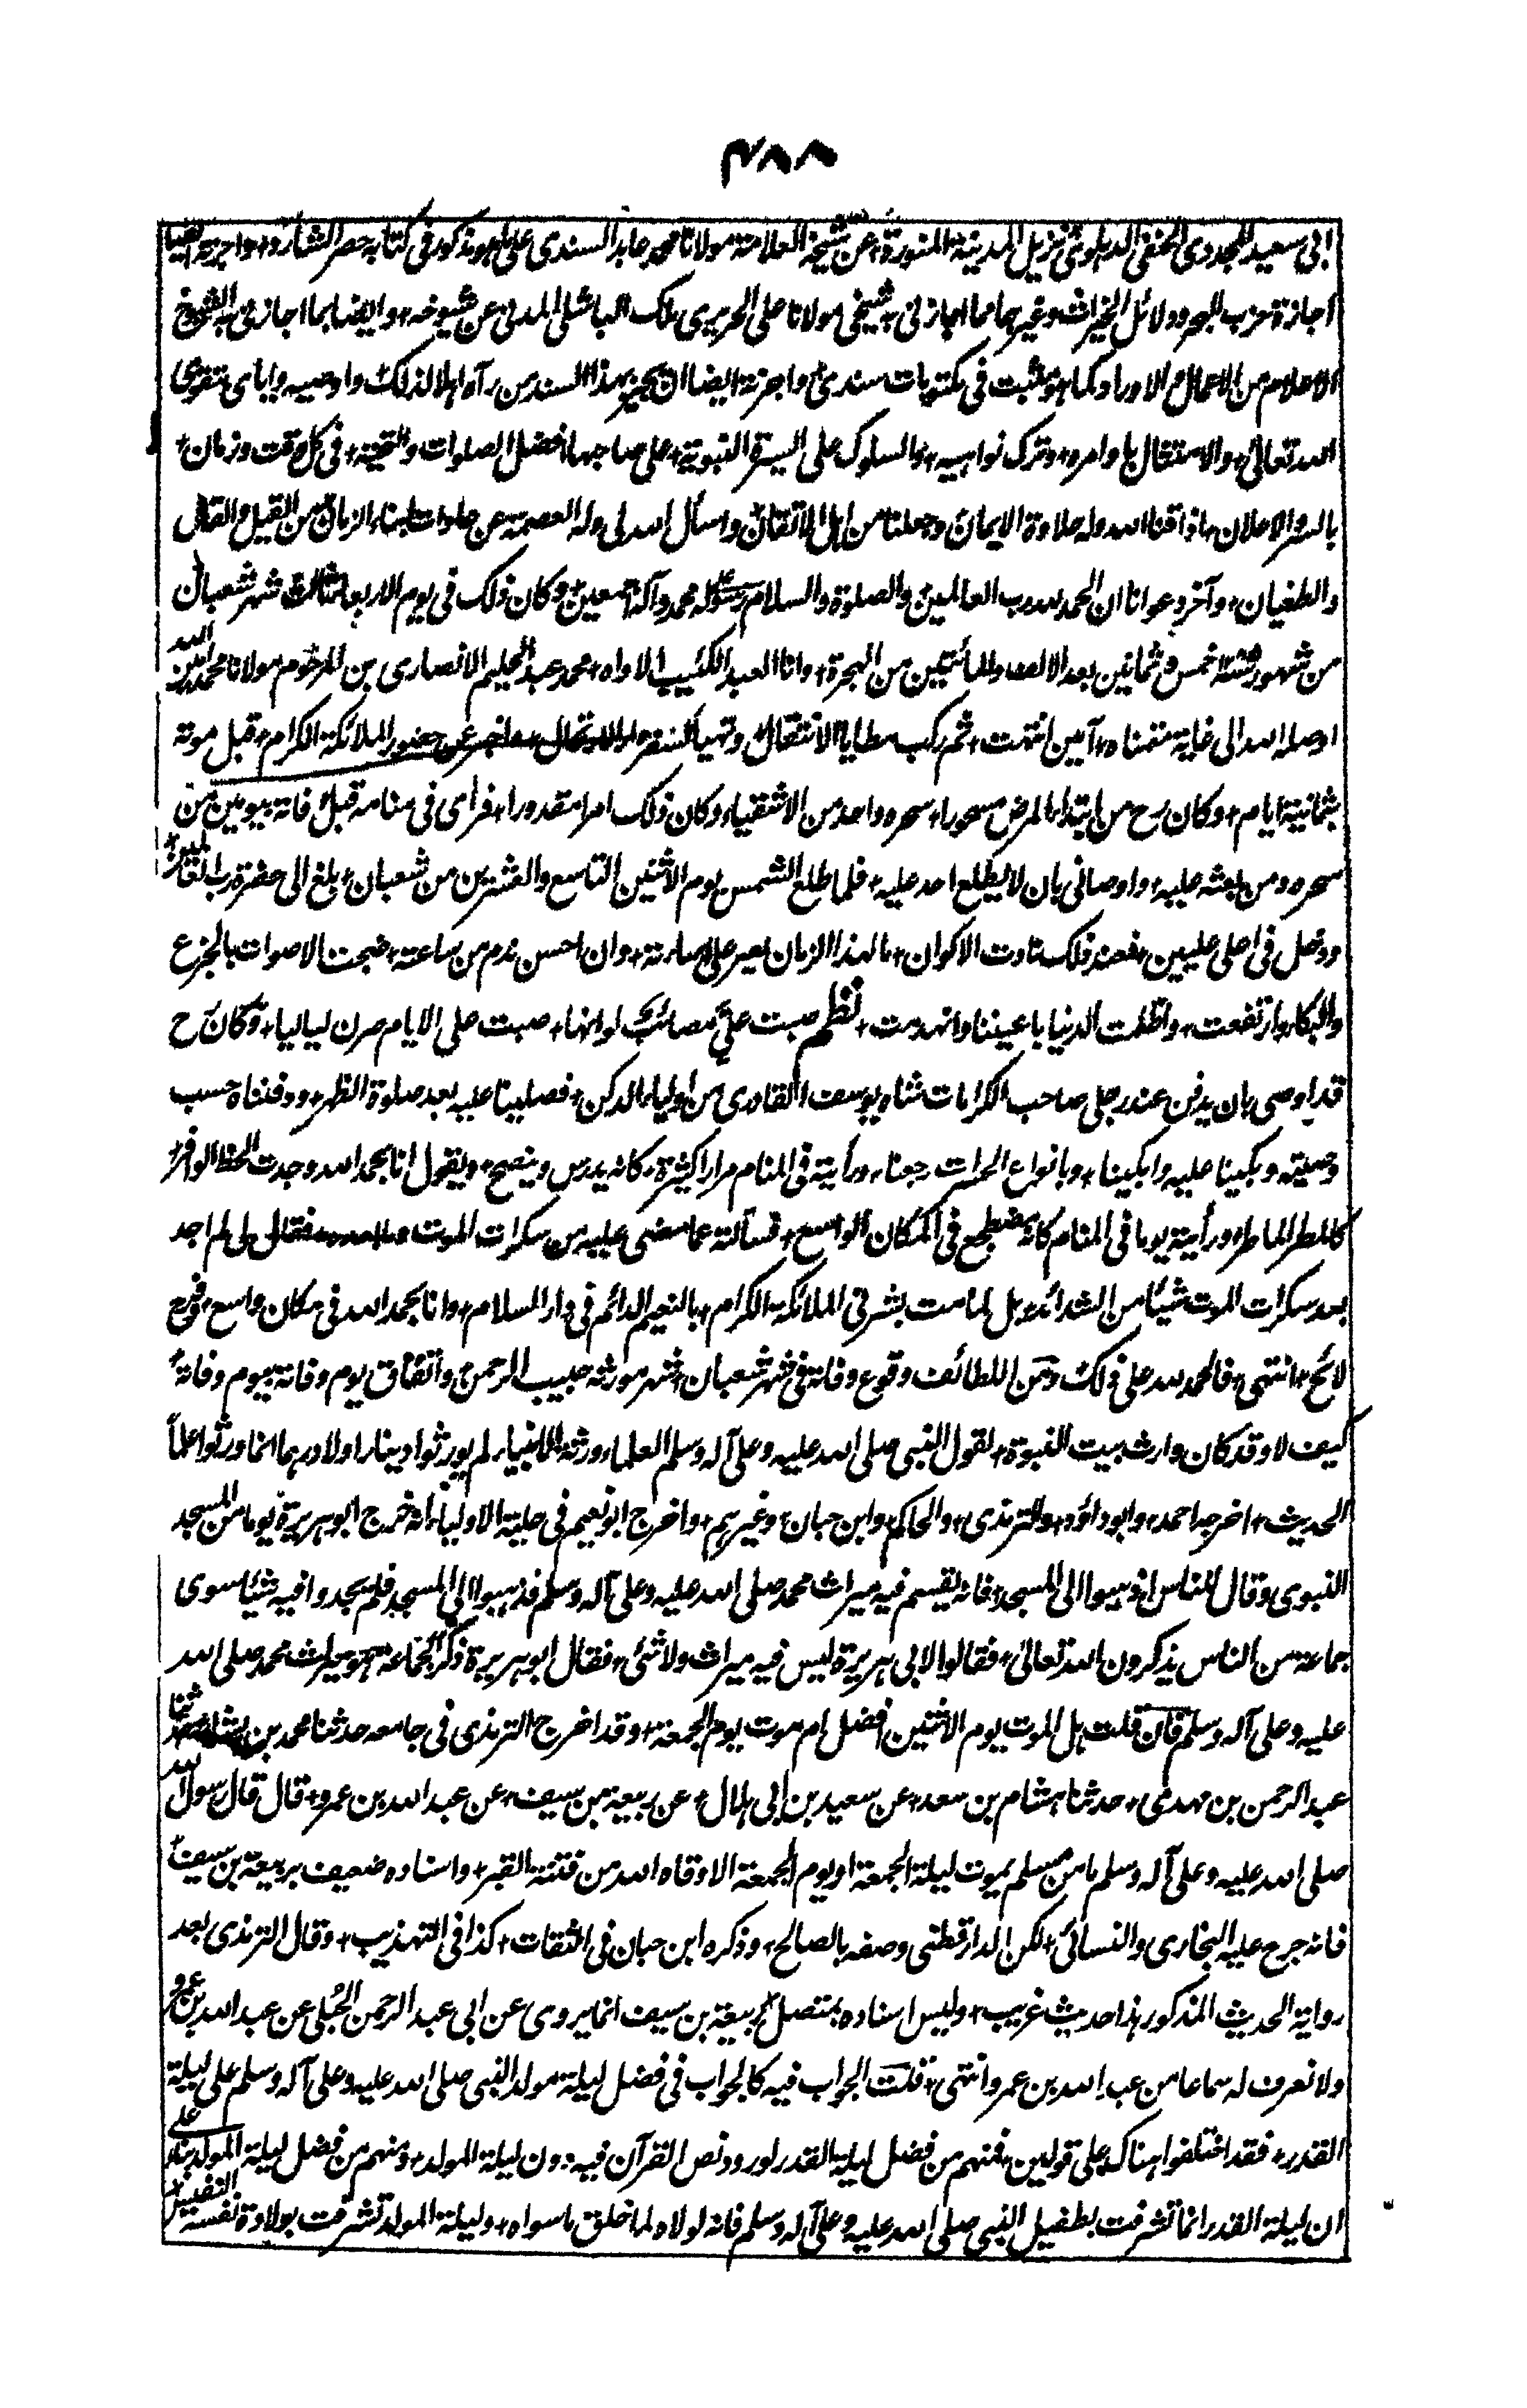 ٤٨٨
ابی سعید المجددی الحنفی الدہلوی نزیل المدینۃ المنورۃ عن شیخہ العلامۃ مولانا محمد عابد السندی علی ما ہو مذکور فی کتابہ حصر الشارد واجزتہ ایضا
اجازۃ حزب البحر ودلائل الخیرات وغیرہما مما اجازنی بہ شیخی مولانا علی الحریری ملک الباشلی المدنی عن شیوخہ وایضا بما اجازنی بہ الشیوخ
الاعلام من الاعمال والاوراد کما ہو مثبت فی مکتوبات سندی واجزتہ ایضا ان یجیز بہذا السند من رآہ اہلا لذلک واوصیہ وایای بتقوی
اللہ تعالی والاشتغال باوامرہ وترک نواہیہ والسلوک علی السیرۃ النبویۃ علی صاحبہا افضل الصلوات والتحیۃ فی کل وقت وزمان
بالسر والاعلان اذاقنا اللہ ولہ حلاوۃ الایمان وجعلنا من اہل الاتقان واسأل اللہ لی ولہ العصمۃ عن عادات ابناء الزمان من القیل والقال
والطغیان وآخر دعوانا ان الحمد للہ رب العالمین والصلوۃ والسلام علی رسولہ محمد وآلہ اجمعین وکان ذلک فی یوم الاربعاء ثالث شہر شعبان
من شہور سنۃ خمس وثمانین بعد الالف والمأتین من الہجرۃ وانا العبد الکئیب الاواہ محمد عبد الحلیم الانصاری بن المرحوم مولانا محمد امین اللہ
اوصلہ اللہ الی غایۃ متمناہ آمین انتہت ثم رکب مطایا الانتقال وتہیأ لسفر الارتحال واخبر عن حضور الملائکۃ الکرام قبل موتہ
بثمانیۃ ایام وکان رح من ابتداء المرض مسحورا سحرہ واحد من الاشقیاء وکان ذلک امرا مقدورا فرای فی منامہ قبل وفاتہ بیومین من
سحرہ ومن بعثہ علیہ واوصانی بان لا یطلع احد علیہ فلما طلع الشمس یوم الاثنین التاسع والعشرین من شعبان بلغ الی حضرۃ رب العالمین
ودخل فی اعلی علیین فعند ذلک تاوت الاکوان ما لہذا الزمان یصر علی اساءتہ وان احسن ندم من ساعتہ ضجت الاصوات بالجزع
والبکاء وارتفعت واظلمت الدنیا باعیننا وانہدمت نظم صبت علی مصائب لو انہا صبت علی الایام صرن لیالیا وکان رح
قد اوصی بان یدفن عند رجلی صاحب الکرامات شاہ یوسف القادری من اولیاء الدکن فصلینا علیہ بعد صلوۃ الظہر ودفناہ حسب
وصیتہ وبکینا علیہ وابکینا وبانواع الحسرات رجعنا ورأیتہ فی المنام مرارا کثیرۃ کانہ یدرس وینصح ویقول انا بحمد اللہ وجدت الحظ الوافر
کالمطر الماطر ورأیتہ یوما فی المنام کانہ مضطجع فی المکان الواسع فسألتہ عما مضی علیہ من سکرات الموت فقال لی لم اجد
بعد سکرات الموت شیئا من الشدائد بل لما مت بشرنی الملائکۃ الکرام بالنعیم الدائم فی دار السلام وانا بحمد اللہ فی مکان واسع وفرح
لائح انتہی فالحمد للہ علی ذلک ومن اللطائف وقوع وفاتہ فی شہر شعبان شہر مورثہ حبیب الرحمن واتفاق یوم وفاتہ بیوم وفاتہ
کیف لا وقد کان وارث بیت النبوۃ لقول النبی صلی اللہ علیہ وعلی آلہ وسلم العلماء ورثۃ الانبیاء لم یورثوا دینارا ولا درہما انما ورثوا علما
الحدیث اخرجہ احمد وابو داؤد والترمذی والحاکم وابن حبان وغیرہم واخرج ابو نعیم فی حلیۃ الاولیاء انہ خرج ابو ہریرۃ یوما من المسجد
النبوی وقال للناس اذہبوا الی المسجد فانہ یقسم فیہ میراث محمد صلی اللہ علیہ وعلی آلہ وسلم فذہبوا الی المسجد فلم یجدوا فیہ شیئا سوی
جماعۃ من الناس یذکرون اللہ تعالی فقالوا لابی ہریرۃ لیس فیہ میراث ولا شئی فقال ابو ہریرۃ ذکر الجماعۃ ہو میراث محمد صلی اللہ
علیہ وعلی آلہ وسلم فان قلت ہل الموت یوم الاثنین افضل ام موت یوم الجمعۃ وقد اخرج الترمذی فی جامعہ حدثنا محمد بن بشار حدثنا
عبد الرحمن بن مہدی حدثنا ہشام بن سعد عن سعید بن ابی ہلال عن ربیعۃ بن سیف عن عبد اللہ بن عمرو قال قال رسول اللہ
صلی اللہ علیہ وعلی آلہ وسلم ما من مسلم یموت لیلۃ الجمعۃ او یوم الجمعۃ الا وقاہ اللہ من فتنۃ القبر واسنادہ ضعیف بربیعۃ بن سیف
فانہ جرح علیہ البخاری والنسائی لکن الدارقطنی وصفہ بالصالح وذکرہ ابن حبان فی الثقات کذا فی التہذیب وقال الترمذی بعد
روایۃ الحدیث المذکور ہذا حدیث غریب ولیس اسنادہ بمتصل ربیعۃ بن سیف انما یروی عن ابی عبد الرحمن الحُبُلی عن عبد اللہ بن عمرو
ولا نعرف لہ سماعا من عبد اللہ بن عمرو انتہی قلت الجواب فیہ کالجواب فی فضل لیلۃ مولد النبی صلی اللہ علیہ وعلی آلہ وسلم علی لیلۃ
القدر فقد اختلفوا ہناک علی قولین فمنہم من فضل لیلۃ القدر لورود نص القرآن فیہ دون لیلۃ المولد ومنہم من فضل لیلۃ المولد بناء علی
ان لیلۃ القدر انما تشرفت بطفیل النبی صلی اللہ علیہ وعلی آلہ وسلم فانہ لولاہ لما خلق ما سواہ ولیلۃ المولد تشرفت بولادۃ نفسہ النفیسۃ